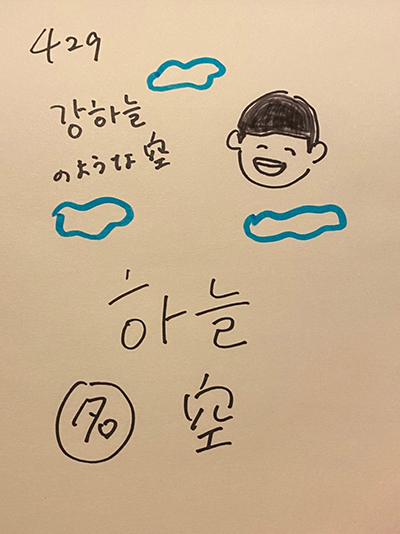 429
강하늘
のような空
하늘
名 空